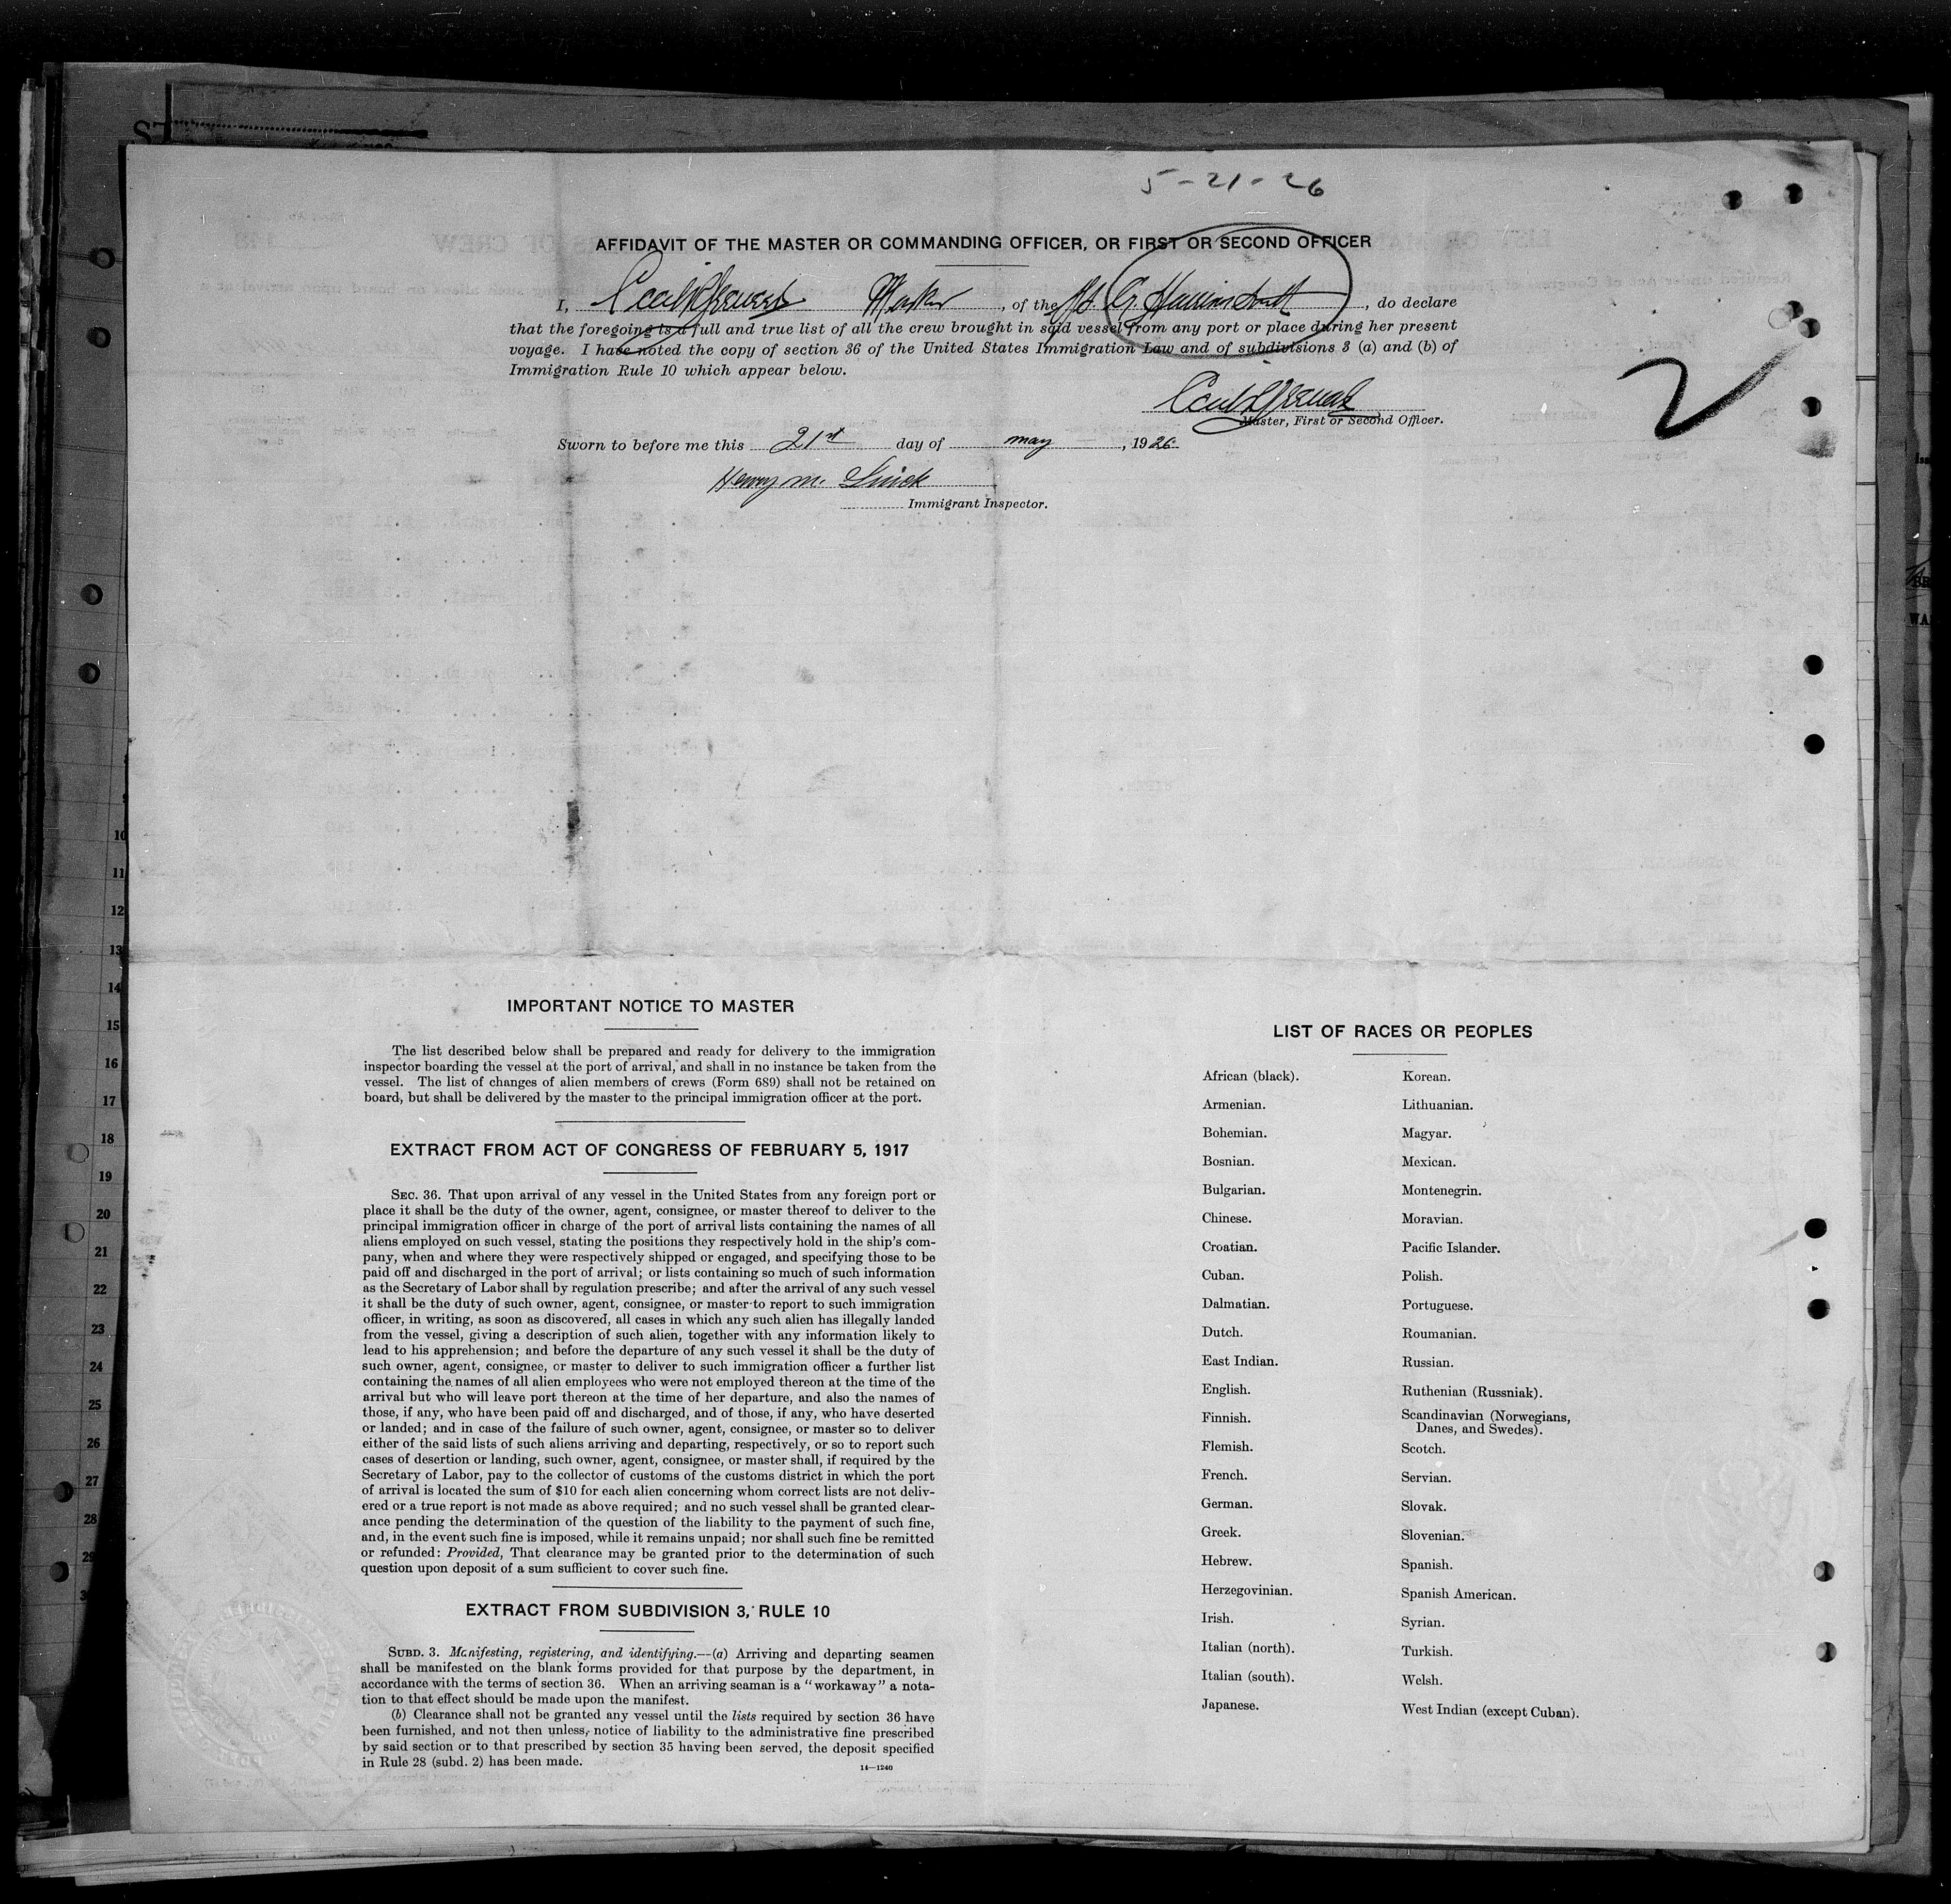 5-21-26
AFFIDAVIT OF THE MASTER OR COMMANDING OFFICER, OR FIRST OR SECOND OFFICER
I, Master, of the do declare
that the foregoing is a full and true list of all the crew brought in said vessel from any port or place during her present
voyage. I have noted the copy of section 36 of the United States Immigration Law and of subdivisions 3 (a) and (b) of
Immigration Rule 10 which appear below.
2
Master, First or Second Officer.
Sworn to before me this 21st day of may, 1926
Henry m.
Immigrant Inspector.
IMPORTANT NOTICE TO MASTER
The list described below shall be prepared and ready for delivery to the immigration
inspector boarding the vessel at the port of arrival, and shall in no instance be taken from the
vessel. The list of changes of alien members of crews (Form 689) shall not be retained on
board, but shall be delivered by the master to the principal immigration officer at the port.
EXTRACT FROM ACT OF CONGRESS OF FEBRUARY 5, 1917
SEC. 36. That upon arrival of any vessel in the United States from any foreign port or
place it shall be the duty of the owner, agent, consignee, or master thereof to deliver to the
principal immigration officer in charge of the port of arrival lists containing the names of all
aliens employed on such vessel, stating the positions they respectively hold in the ship's com-
pany, when and where they were respectively shipped or engaged, and specifying those to be
paid off and discharged in the port of arrival; or lists containing so much of such information
as the Secretary of Labor shall by regulation prescribe; and after the arrival of any such vessel
it shall be the duty of such owner, agent, consignee, or master to report to such immigration
officer, in writing, as soon as discovered, all cases in which any such alien has illegally landed
from the vessel, giving a description of such alien, together with any information likely to
lead to his apprehension; and before the departure of any such vessel it shall be the duty of
such owner, agent, consignee, or master to deliver to such immigration officer a further list
containing the names of all alien employees who were not employed thereon at the time of the
arrival but who will leave port thereon at the time of her departure, and also the names of
those, if any, who have been paid off and discharged, and of those, if any, who have deserted
or landed; and in case of the failure of such owner, agent, consignee, or master so to deliver
either of the said lists of such aliens arriving and departing, respectively, or so to report such
cases of desertion or landing, such owner, agent, consignee, or master shall, if required by the
Secretary of Labor, pay to the collector of customs of the customs district in which the port
of arrival is located the sum of $10 for each alien concerning whom correct lists are not deliv-
ered or a true report is not made as above required; and no such vessel shall be granted clear-
ance pending the determination of the question of the liability to the payment of such fine,
and, in the event such fine is imposed, while it remains unpaid; nor shall such fine be remitted
or refunded: Provided, That clearance may be granted prior to the determination of such
question upon deposit of a sum sufficient to cover such fine.
EXTRACT FROM SUBDIVISION 3, RULE 10
SUBD. 3. Manifesting, registering, and identifying.—(a) Arriving and departing seamen
shall be manifested on the blank forms provided for that purpose by the department, in
accordance with the terms of section 36. When an arriving seaman is a "workaway" a nota-
tion to that effect should be made upon the manifest.
(b) Clearance shall not be granted any vessel until the lists required by section 36 have
been furnished, and not then unless, notice of liability to the administrative fine prescribed
by said section or to that prescribed by section 35 having been served, the deposit specified
in Rule 28 (subd. 2) has been made.
14—1240
LIST OF RACES OR PEOPLES
African (black).
Armenian.
Bohemian.
Bosnian.
Bulgarian.
Chinese.
Croatian.
Cuban.
Dalmatian.
Dutch.
East Indian.
English.
Finnish.
Flemish.
French.
German.
Greek.
Hebrew.
Herzegovinian.
Irish.
Italian (north).
Italian (south).
Japanese.
Korean.
Lithuanian.
Magyar.
Mexican.
Montenegrin.
Moravian.
Pacific Islander.
Polish.
Portuguese.
Roumanian.
Russian.
Ruthenian (Russniak).
Scandinavian (Norwegians,
Danes, and Swedes).
Scotch.
Servian.
Slovak.
Slovenian.
Spanish.
Spanish American.
Syrian.
Turkish.
Welsh.
West Indian (except Cuban).
10
11
12
13
14
15
16
17
18
19
20
21
22
23
24
25
26
27
28